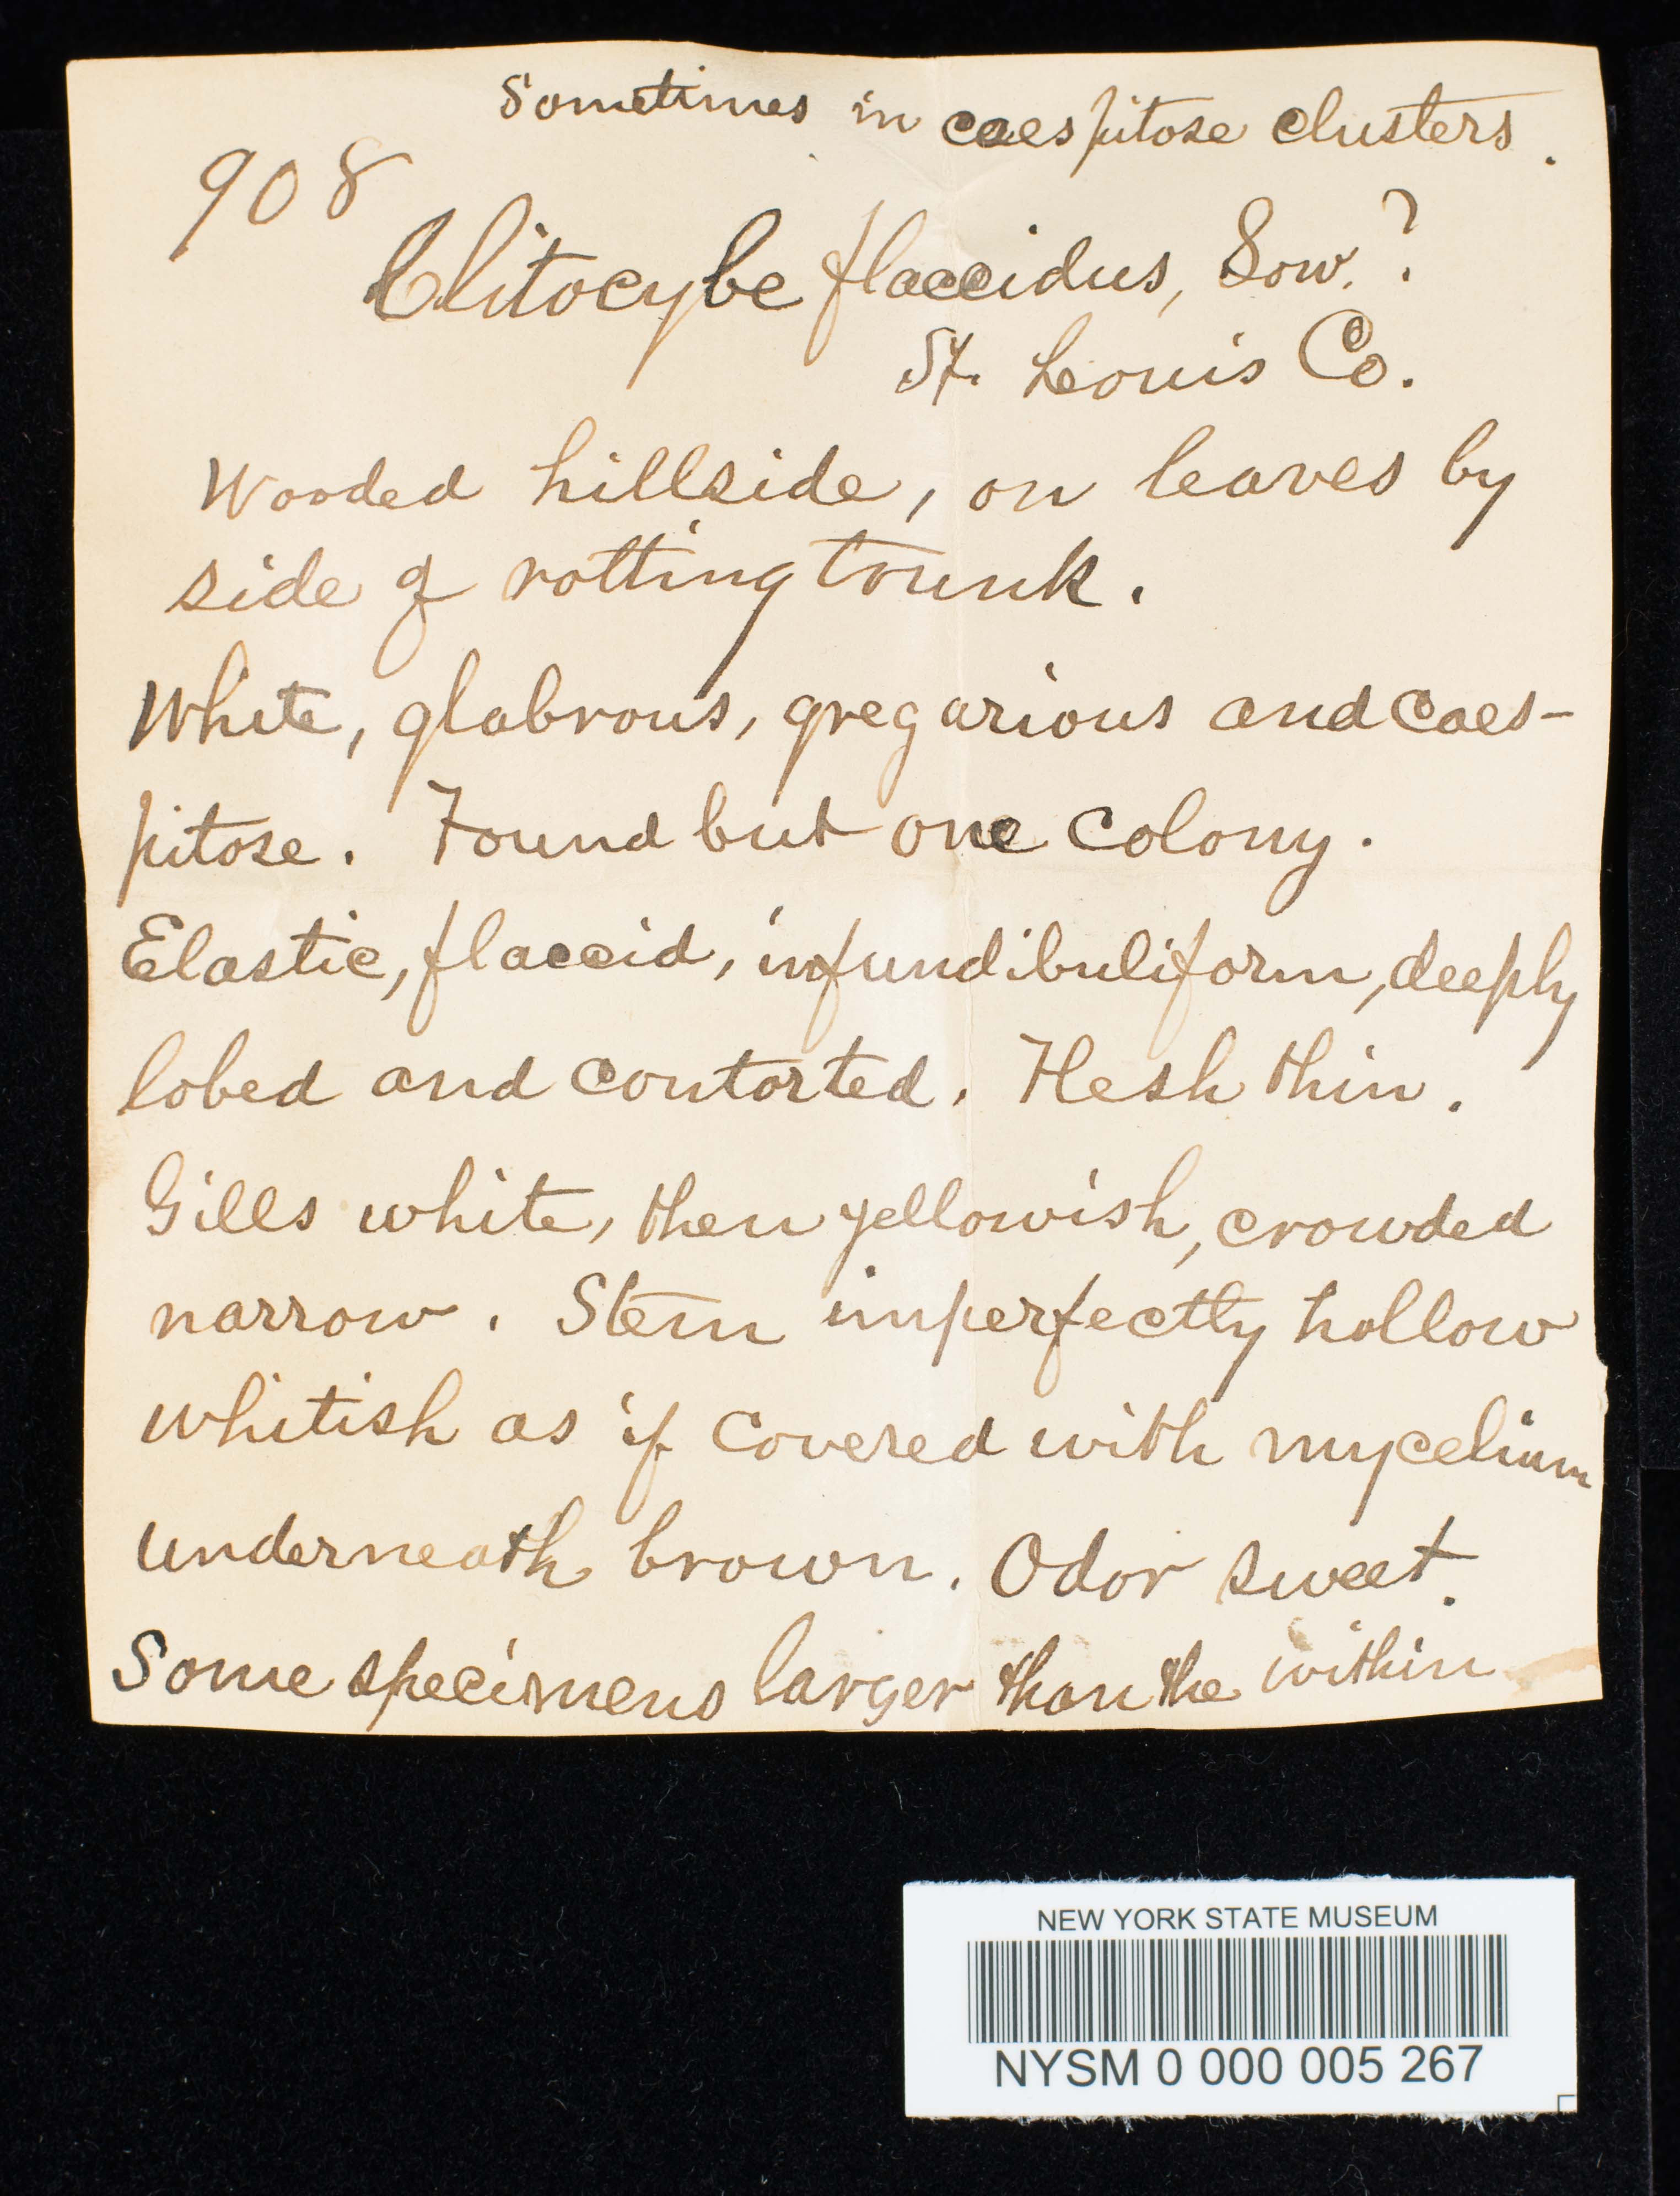 Sometimes in caespitose clusters.
908
Clitocybe flaccidus, Sow.?
St. Louis Co.
Wooded hillside, on leaves by
side of rotting trunk.
White, glabrous, gregarious and caes-
pitose. Found but one colony.
Elastic, flaccid, infundibuliform, deeply
lobed and contorted. Flesh thin.
Gills white, then yellowish, crowded
narrow. Stem imperfectly hollow
whitish as if covered with mycelium
underneath brown. Odor sweet.
Some specimens larger than the within
NEW YORK STATE MUSEUM
NYSM 0 000 005 267